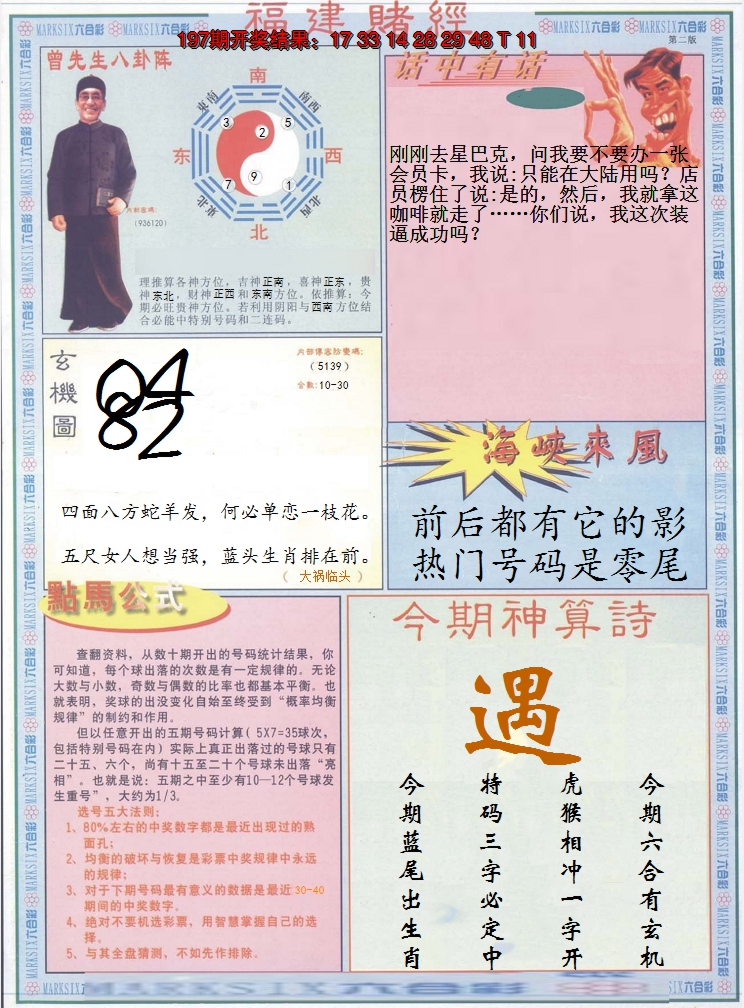 福建賭經
197期开奖结果：17 33 14 28 29 48 T 11
MARKSIX六合彩 MARKSIX六合彩 MARKSIX六合彩 MARKSIX六合彩
第二版
曾先生八卦阵
南
东南
南西
3
5
2
东
西
9
7
1
東北
北西
北
内部密碼:
(936120)
理推算各神方位，吉神正南，喜神正东，贵
神东北，财神正西和东南方位。依推算：今
期必旺贵神方位。若利用阴阳与西南方位结
合必能中特别号码和二连码。
话中有话
刚刚去星巴克，问我要不要办一张
会员卡，我说:只能在大陆用吗？店
员楞住了说:是的，然后，我就拿这
咖啡就走了……你们说，我这次装
逼成功吗？
玄機圖
04
82
(5139)
合数:10-30
四面八方蛇羊发，何必单恋一枝花。
五尺女人想当强，蓝头生肖排在前。
（ 大祸临头 ）
海峽來風
前后都有它的影
热门号码是零尾
點馬公式
查翻资料，从数十期开出的号码统计结果，你
可知道，每个球出落的次数是有一定规律的。无论
大数与小数，奇数与偶数的比率也都基本平衡。也
就表明，奖球的出没变化自始至终受到“概率均衡
规律”的制约和作用。
但以任意开出的五期号码计算( 5X7=35球次，
包括特别号码在内）实际上真正出落过的号球只有
二十五、六个，尚有十五至二十个号球未出落“亮
相”。也就是说：五期之中至少有10—12个号球发
生重号”，大约为1/3。
选号五大法则：
1、80%左右的中奖数字都是最近出现过的熟
面孔；
2、均衡的破坏与恢复是彩票中奖规律中永远
的规律；
3、对于下期号码最有意义的数据是最近30-40
期间的中奖数字。
4、绝对不要机选彩票，用智慧掌握自己的选
择。
5、与其全盘猜测，不如先作排除。
今期神算詩
遇
今期六合有玄机
虎猴相冲一字开
特码三字必定中
今期蓝尾出生肖